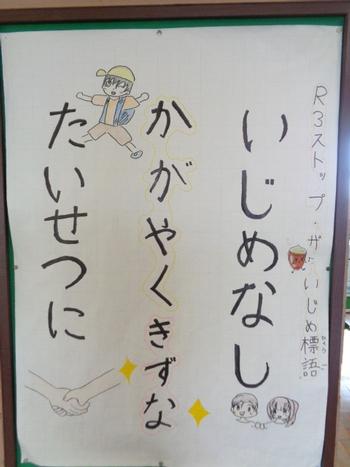 R3ストップ・ザ・いじめ標語
ひょうご
いじめなし
かがやくきずな
たいせつに